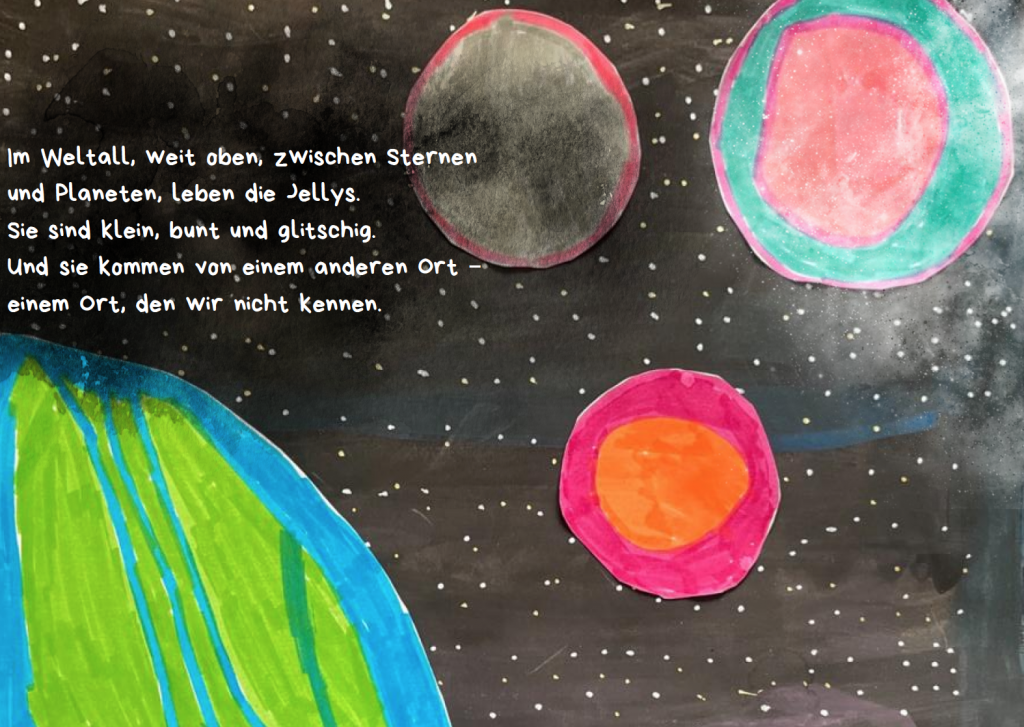 Im Weltall, weit oben, zwischen Sternen
und Planeten, leben die Jellys.
Sie sind klein, bunt und glitschig.
Und sie kommen von einem anderen Ort –
einem Ort, den wir nicht kennen.